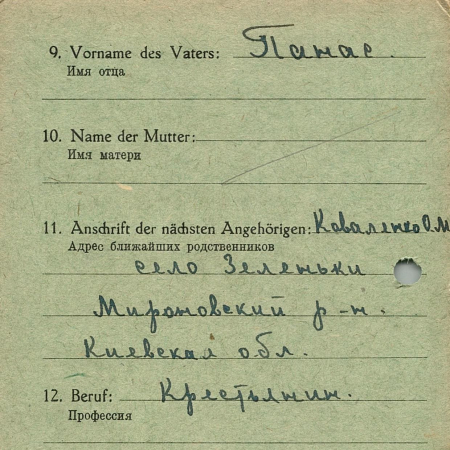 9. Vorname des Vaters: Панас.
Имя отца
10. Name der Mutter:
Имя матери
11. Anschrift der nächsten Angehörigen: Коваленко О.М
Адрес ближайших родственников
село Зеленьки
Мироновский р-н.
Киевская обл.
12. Beruf: Крестьянин.
Профессия